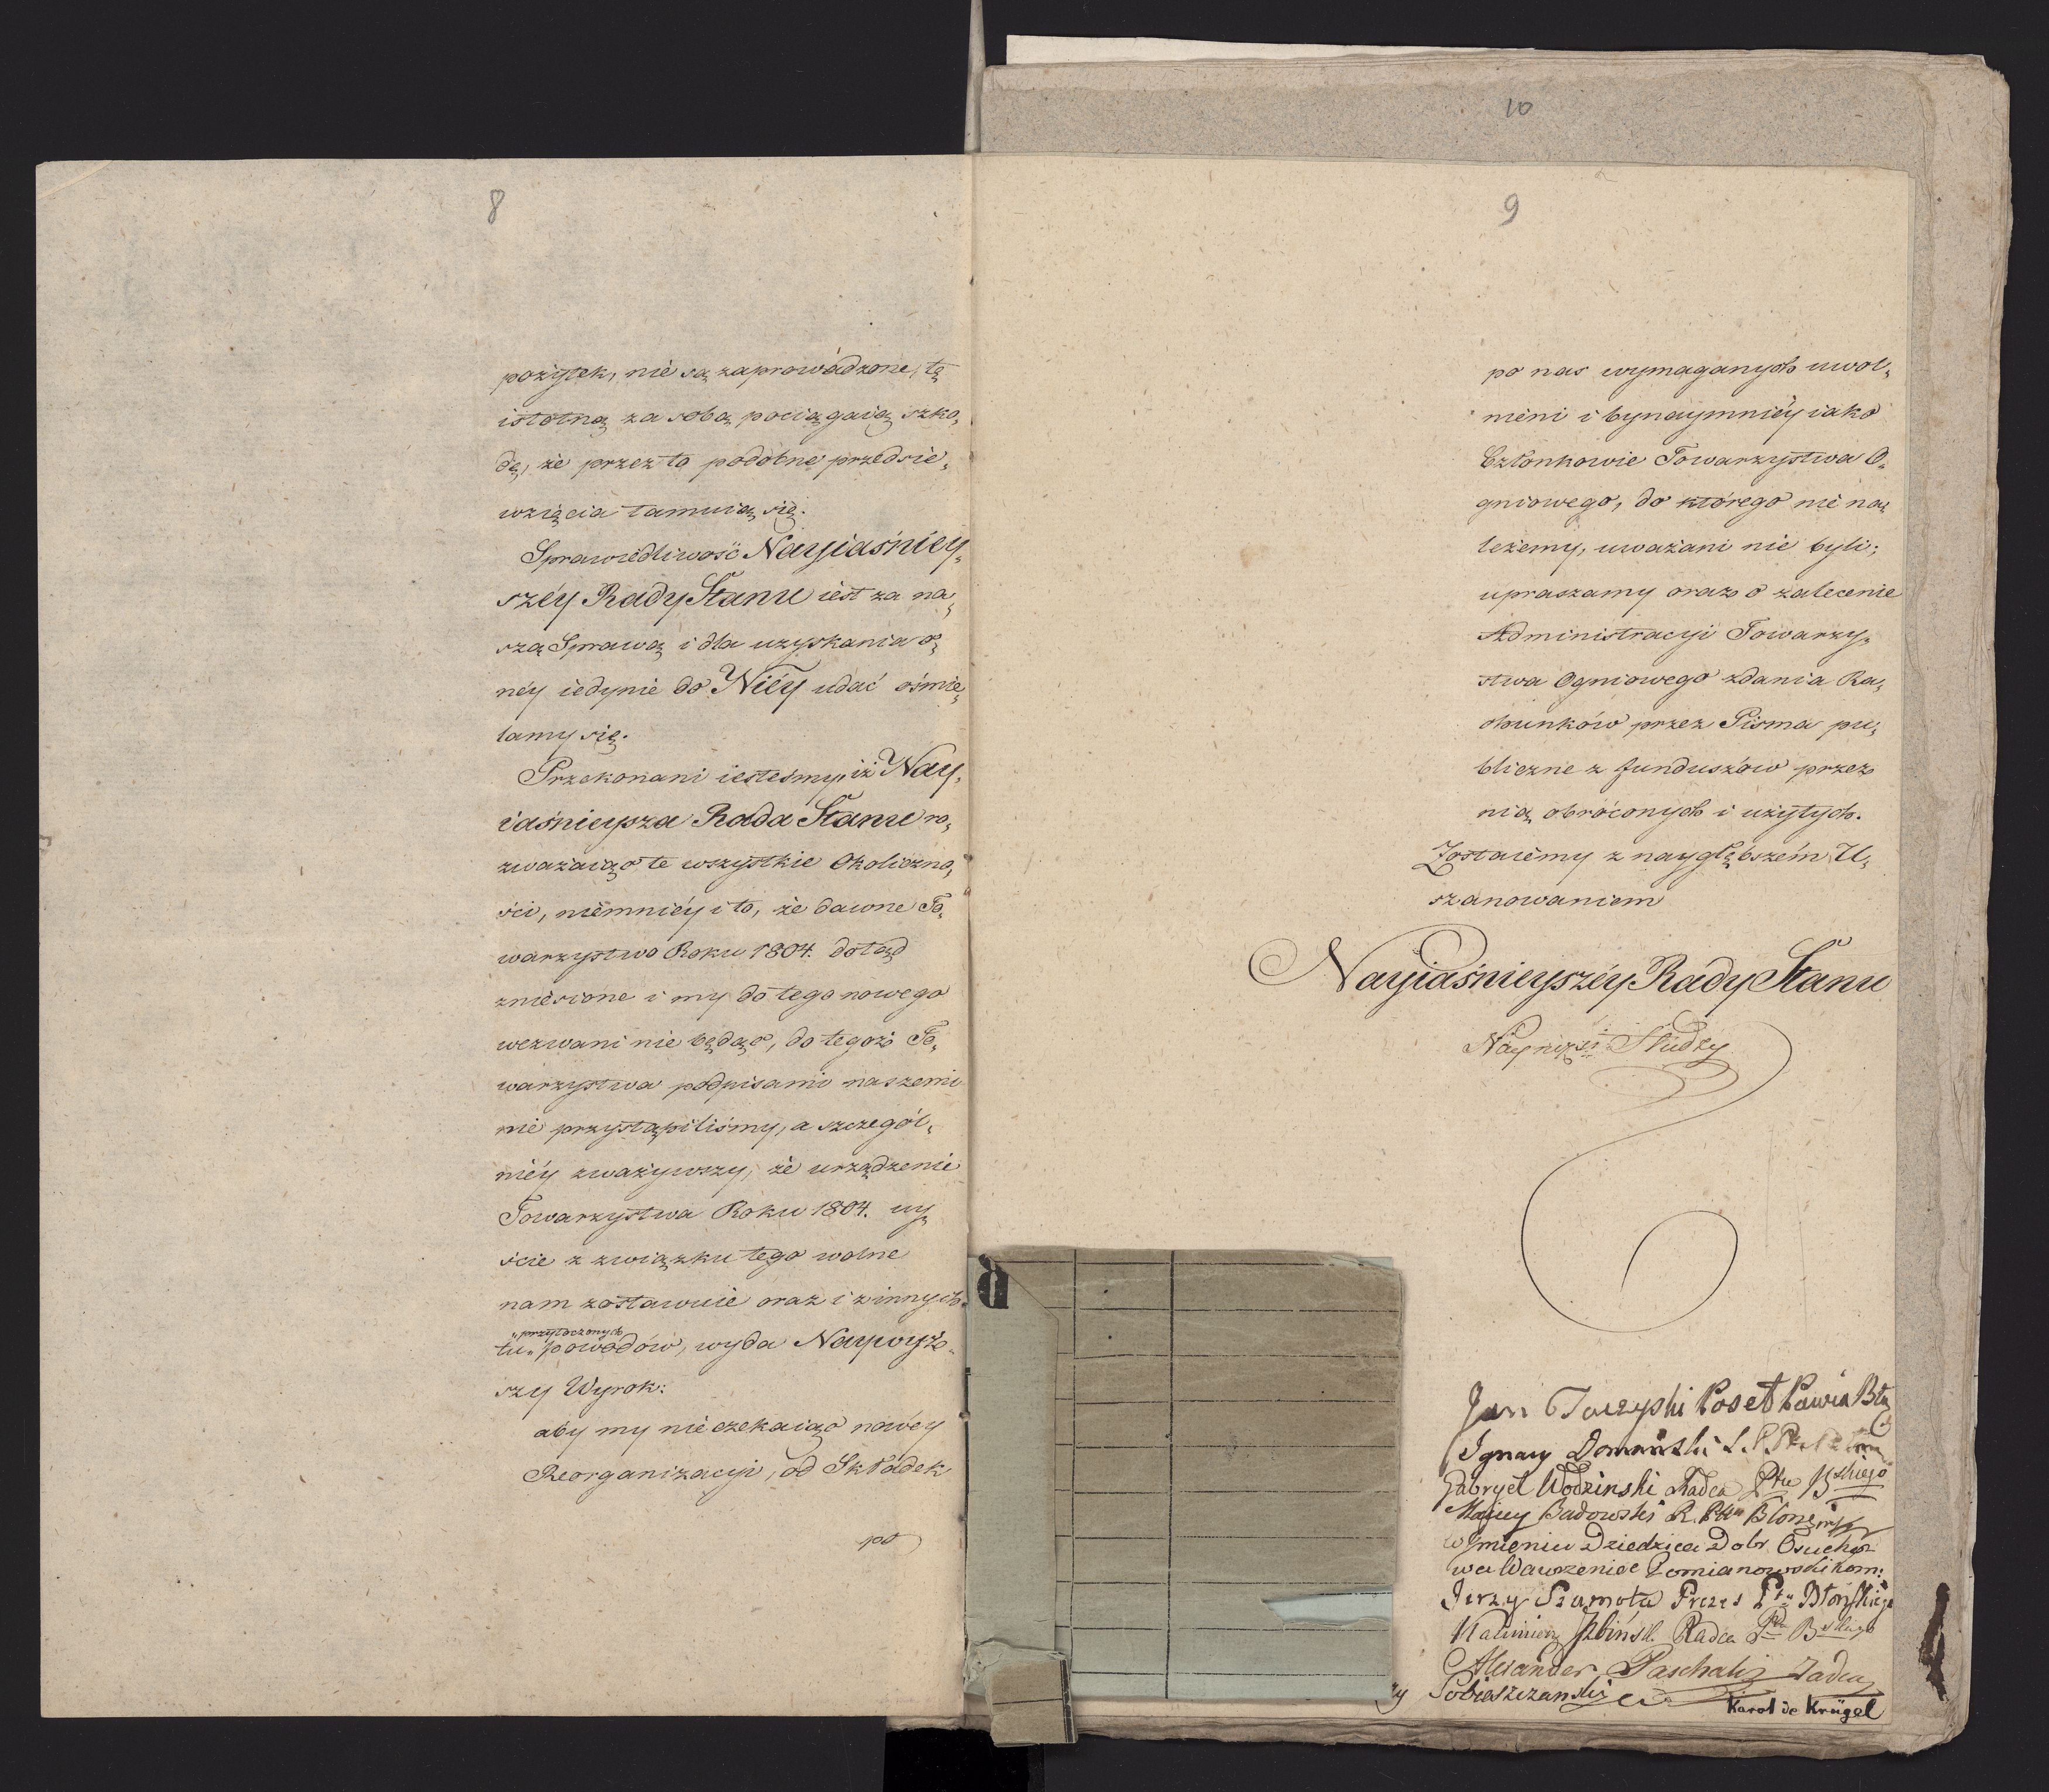 8
pożytek, nie są zaprowadzone, tę
istotną za sobą pociągaią szko„
dę, że przez to podobne przedsie„
wzięcia tamuią się.
Sprawiedliwość Nayiaśniey„
széy Rady Stanu iest za na„
szą Sprawą i dla uzyskania o„
néy iedynie do Niéy udać ośmie„
lamy się.
Przekonani iesteśmy, iż Nay„
iaśnieysza Rada Stanu ro„
zważaiąc te wszystkie Okoliczno„
ści, niemniéy i to, że dawne To„
warzystwo Roku 1804. dotąd
zniesione i my do tego nowego
wezwani nie będąc, do tegoż To„
warzystwa podpisami naszemi
nie przystąpiliśmy, a szczegól„
niéy zważywszy, że urządzenie
Towarzystwa Roku 1804. wy„
ście z związku tego wolne
nam zostawuie oraz i z innych
„przytoczonych
tu„ powodów, wyda Naywyż„
szy Wyrok:
aby my nie czekaiąc nowéy
Reorganizacyi, od Składek
po
10
9
po nas wymaganych uwol„
nieni i bynaymniéy iako
Członkowie Towarzystwa O„
gniowego, do którego nie na„
leżemy, uważani nie byli;
upraszamy oraz o zalecenie
Administracyi Towarzy„
stwa Ogniowego zdania Ra„
chunków przez Pisma pu„
bliczne z funduszów przez
nią obróconych i użytych.
Zostaiemy z naygłębszém U„
szanowaniem
Nayiaśnieyszéy Rady Stanu
Nayniżsi Słudzy
Jan Poseł Powia
Ignacy Domański
Gabryel Wodzinski Radca Ptu Bskiego
Badowski R. Ptu
w Jmieniu Dziedzica Dobr Osucho
wa Wawrzeniec Łomianowski kom:
Jerzy Szamota Prezes Ptu Błońskiego
Kazimierz Radca Ptu
Alexander Paschalis Radca
Sobieszczanski
Karol de Krügel